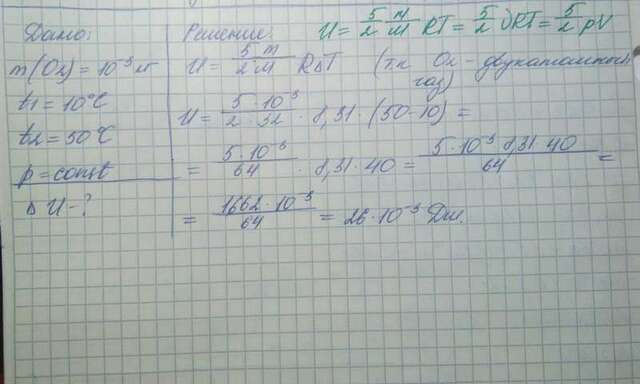 Дано:
m(O₂) = 10⁻³ кг
t₁ = 10°C
t₂ = 50°C
p = const
Δ U - ?
Решение:
U = 5/2 m/M RT = 5/2 νRT = 5/2 pV
U = 5/2 m/M RΔT (т.к O₂ - двухатомный
газ)
U = 5 · 10⁻³ / 2 · 32 · 8,31 · (50-10) =
= 5 · 10⁻³ / 64 · 8,31 · 40 = 5 · 10⁻³ 8,31 · 40 / 64 =
= 1662 · 10⁻³ / 64 = 26 · 10⁻³ Дж.